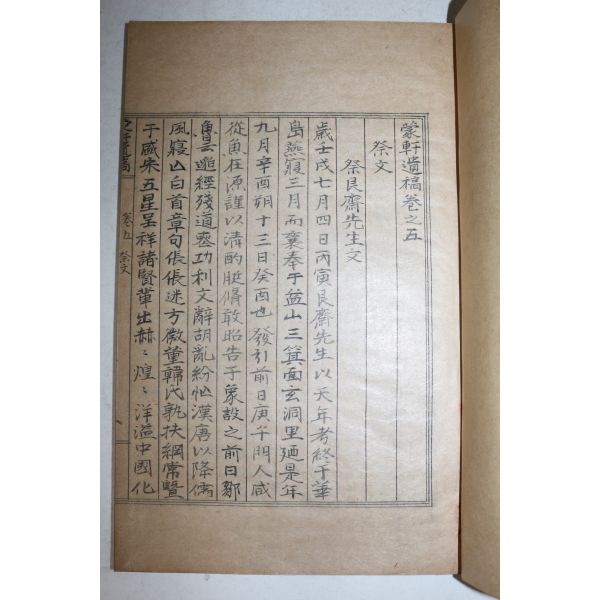 蒙軒遺稿卷之五
祭文
祭艮齋先生文
歲壬戌七月四日丙寅艮齋先生以天年考終于華
島燕寢三月而襄奉于益山三箕面玄洞里廼是年
九月辛酉朔十三日癸酉也發引前日庚午門人咸
從魚在漁謹以清酌脡脩敢昭告于象設之前曰鄒
魯云邈經殘道喪功利文辭胡亂紛忙漢唐以降儒
風寢凶白首章句倀倀迷方微董韓氏孰扶綱常曁
于盛宋五星呈祥諸賢輩出赫〻煌〻洋溢中國化
卷五 祭文